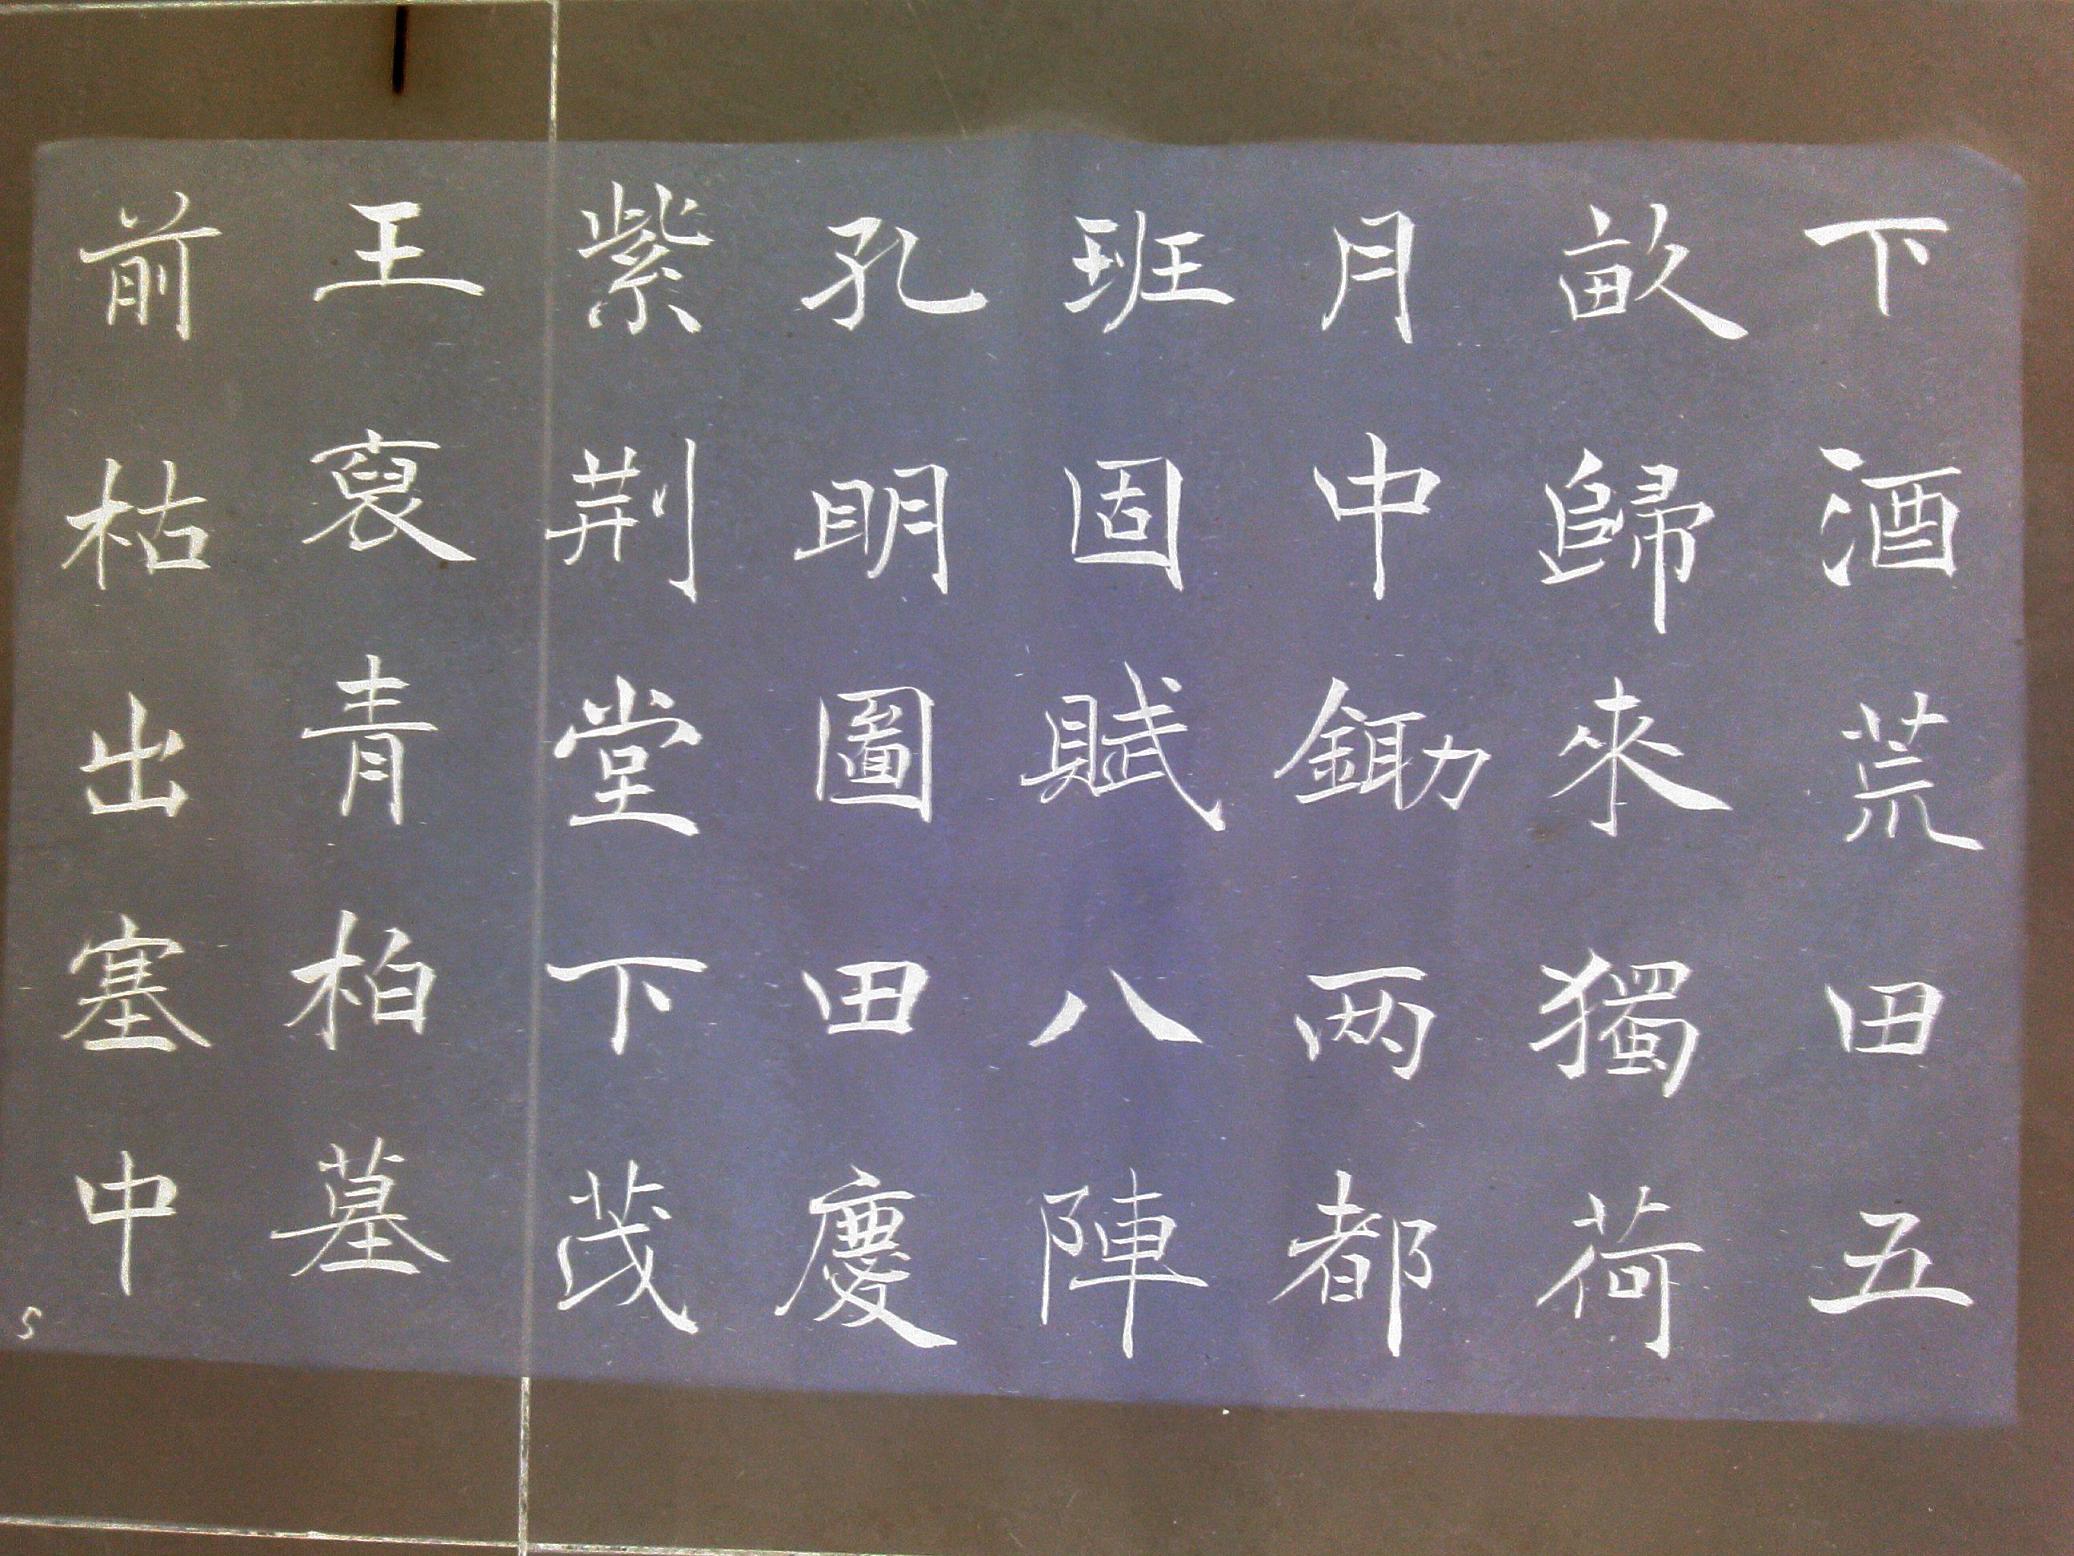 下酒荒田五
畝歸來獨荷
月中鋤两都
班固賦八陣
孔明圖田慶
紫荆堂下茂
王裒青柏墓
前枯出塞中
5